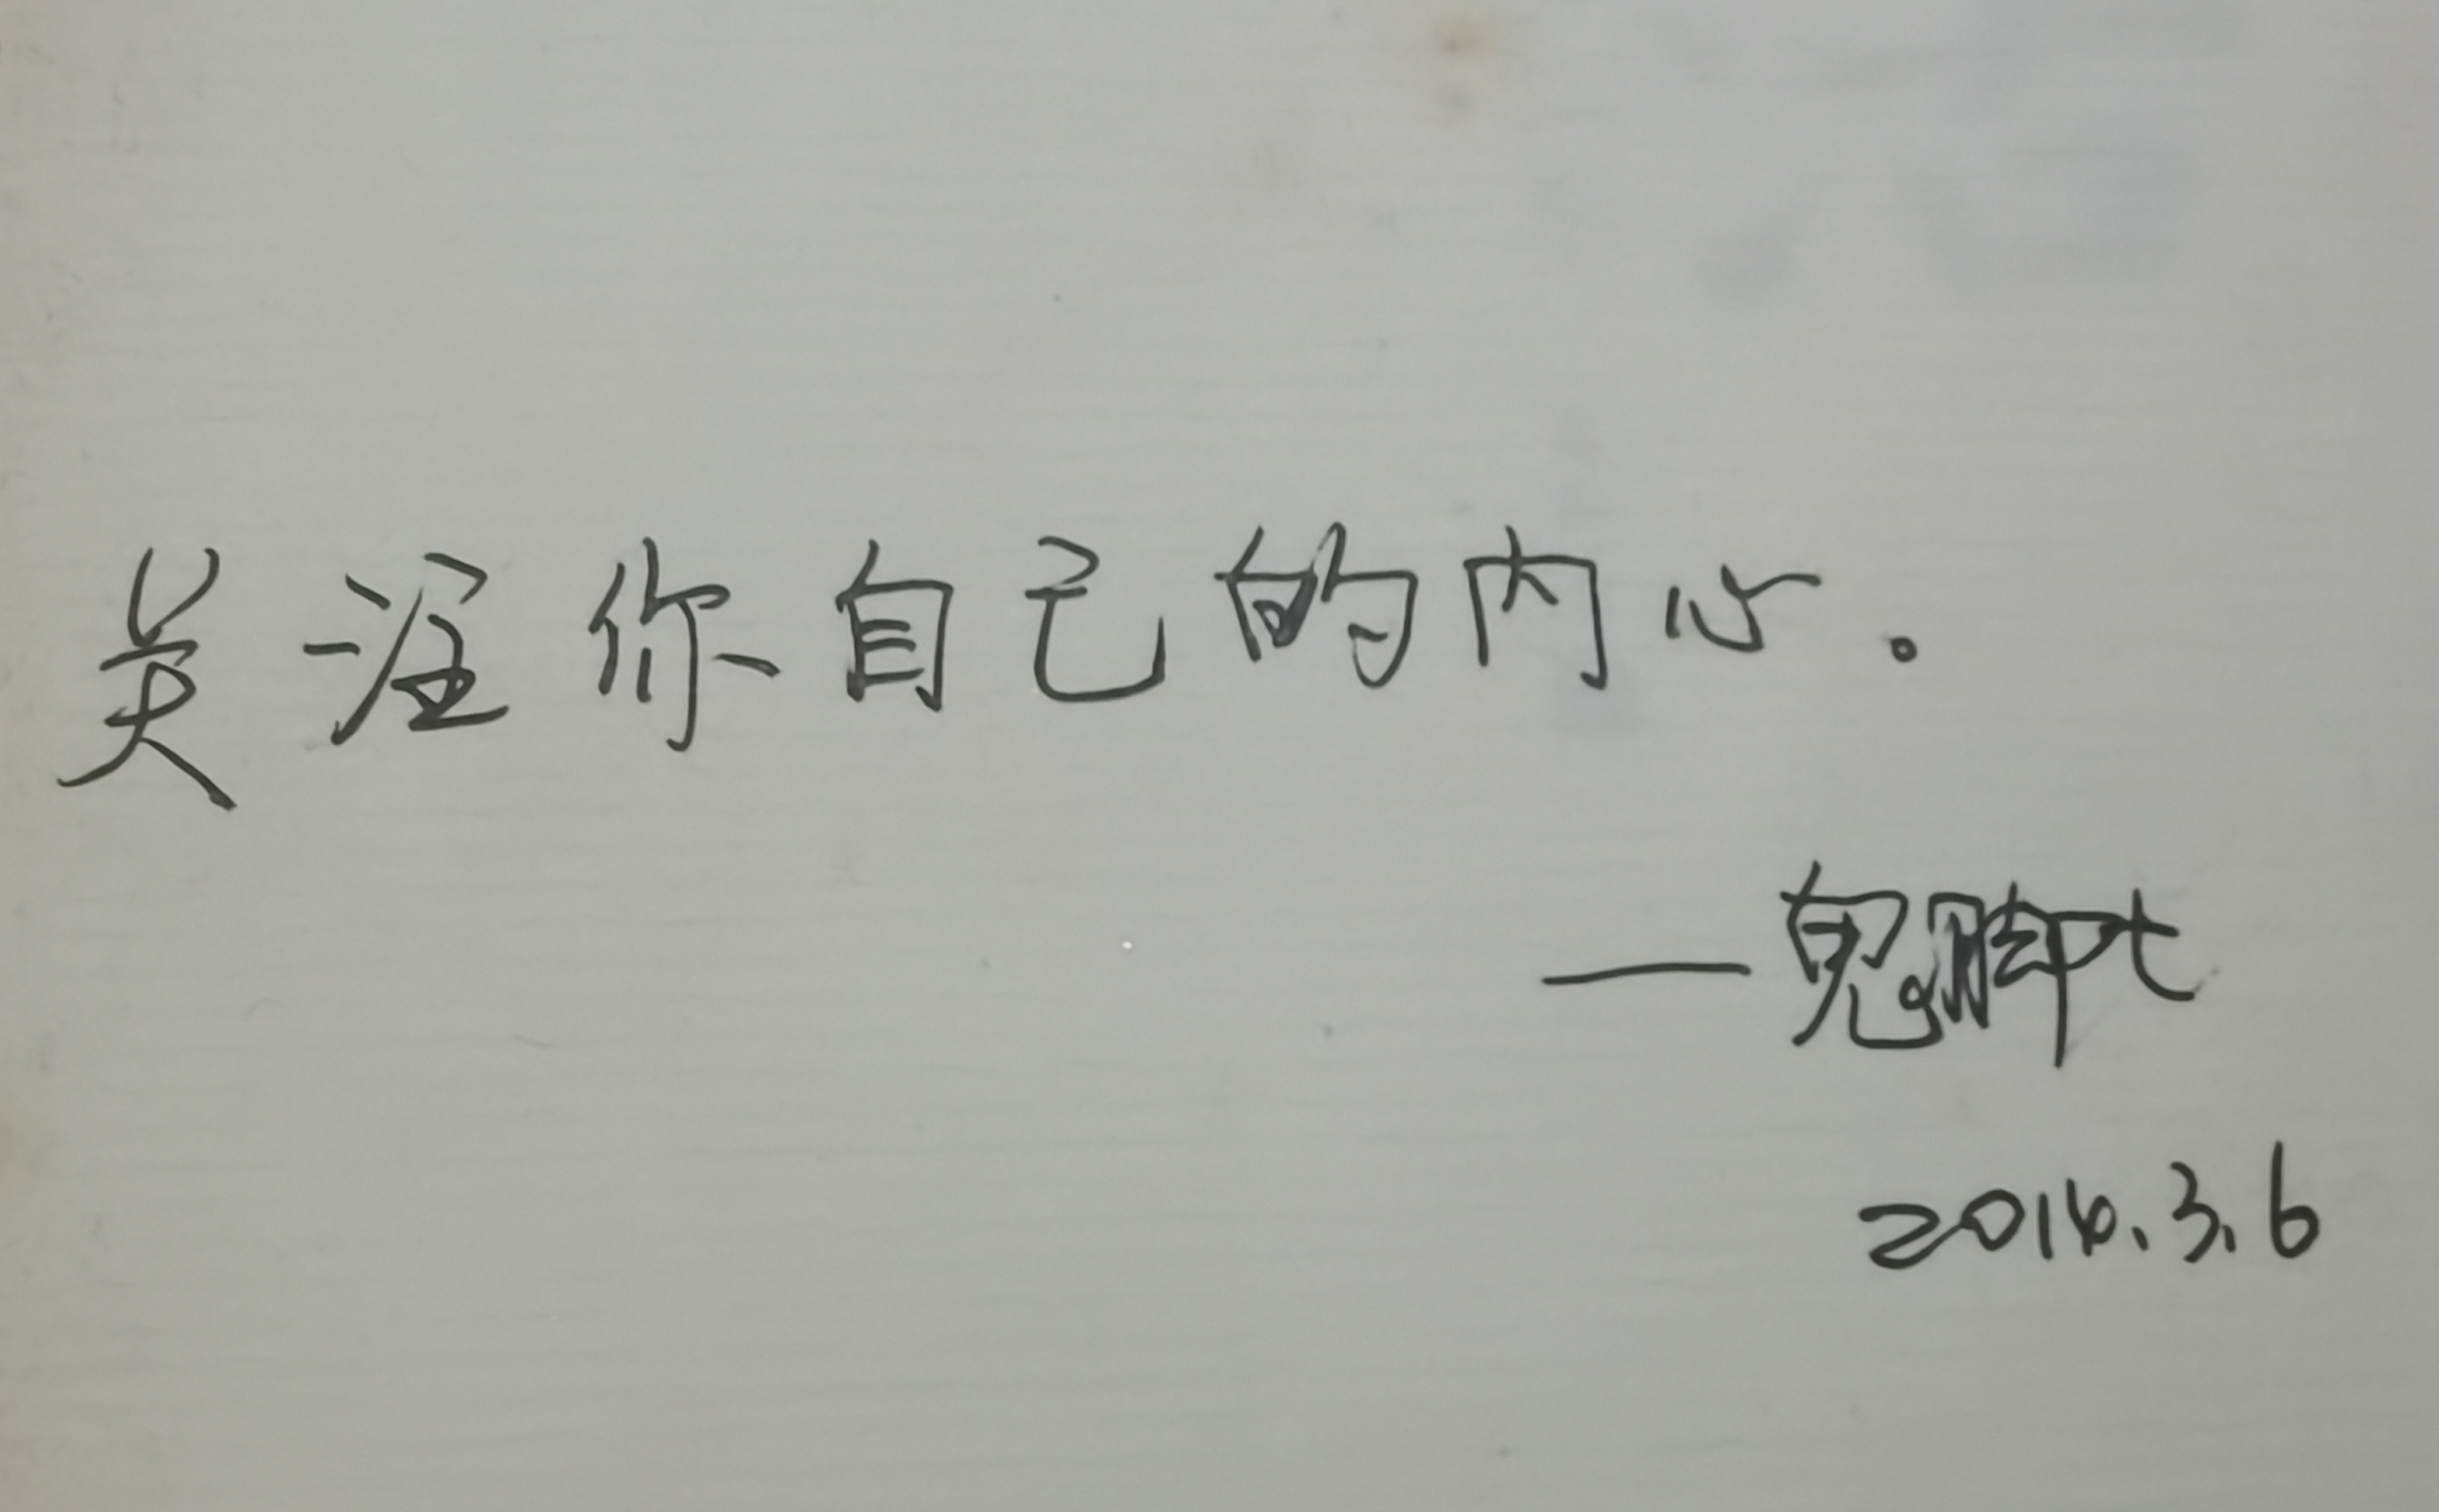 关注你自己的内心。
—鬼脚七
2016.3.6